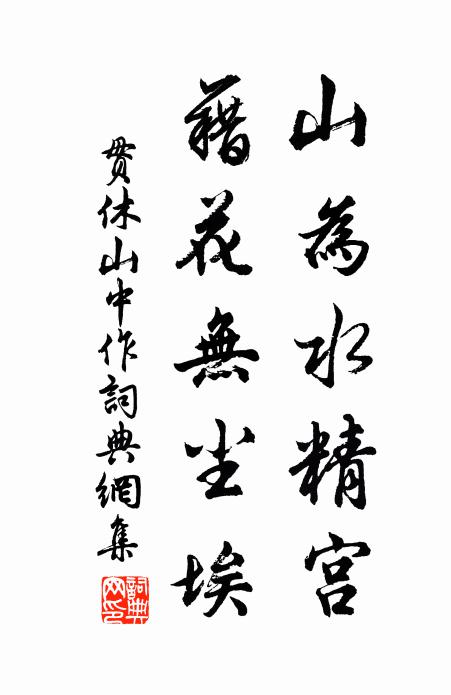 山為水精宮
藉花無尘埃
貫休山中作詞典網集
詞典網印